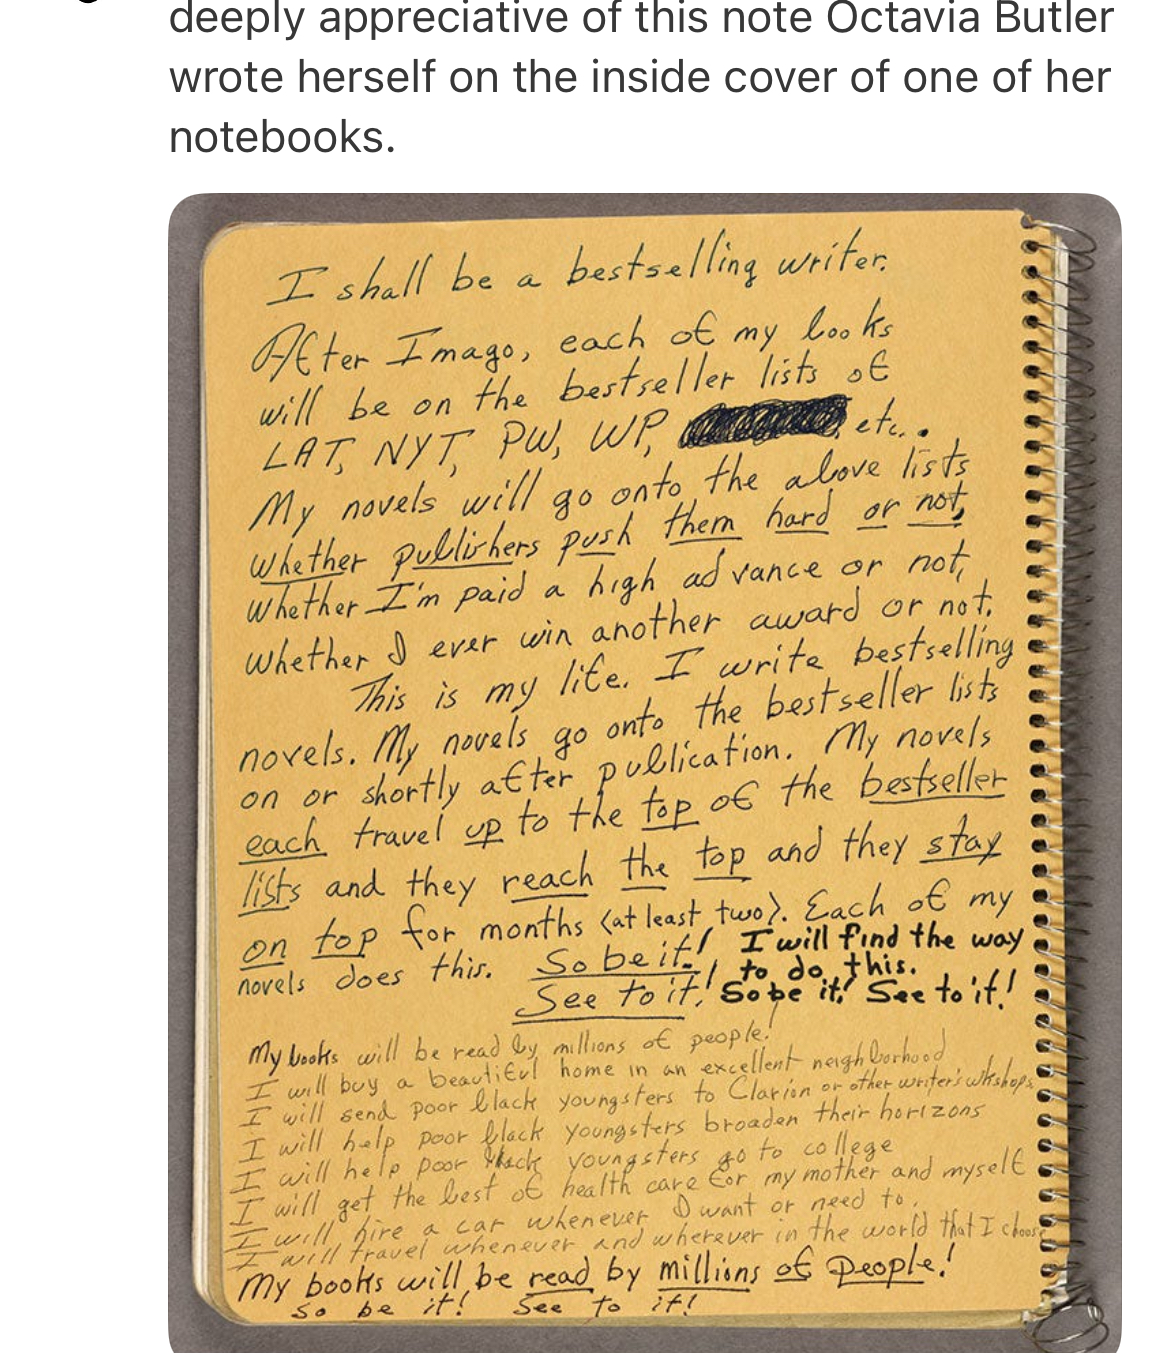 deeply appreciative of this note Octavia Butler
wrote herself on the inside cover of one of her
notebooks.
I shall be a bestselling writer.
After Imago, each of my books
will be on the bestseller lists of
LAT, NYT, PW, WP, , etc..
My novels will go onto the above lists
whether publishers push them hard or not,
whether I'm paid a high advance or not,
whether I ever win another award or not.
This is my life. I write bestselling
novels. My novels go onto the bestseller lists
on or shortly after publication. My novels
each travel up to the top of the bestseller
lists and they reach the top and they stay
on top for months (at least two). Each of my
novels does this. So be it! I will find the way
See to it! to do this.
So be it! See to it!
My books will be read by millions of people!
I will buy a beautiful home in an excellent neighborhood
I will send poor black youngsters to Clarion or other writer's wkshops
I will help poor black youngsters broaden their horizons
I will help poor black youngsters go to college
I will get the best of health care for my mother and myself
I will hire a car whenever I want or need to.
I will travel whenever and wherever in the world that I choose
My books will be read by millions of people!
So be it! See to it!